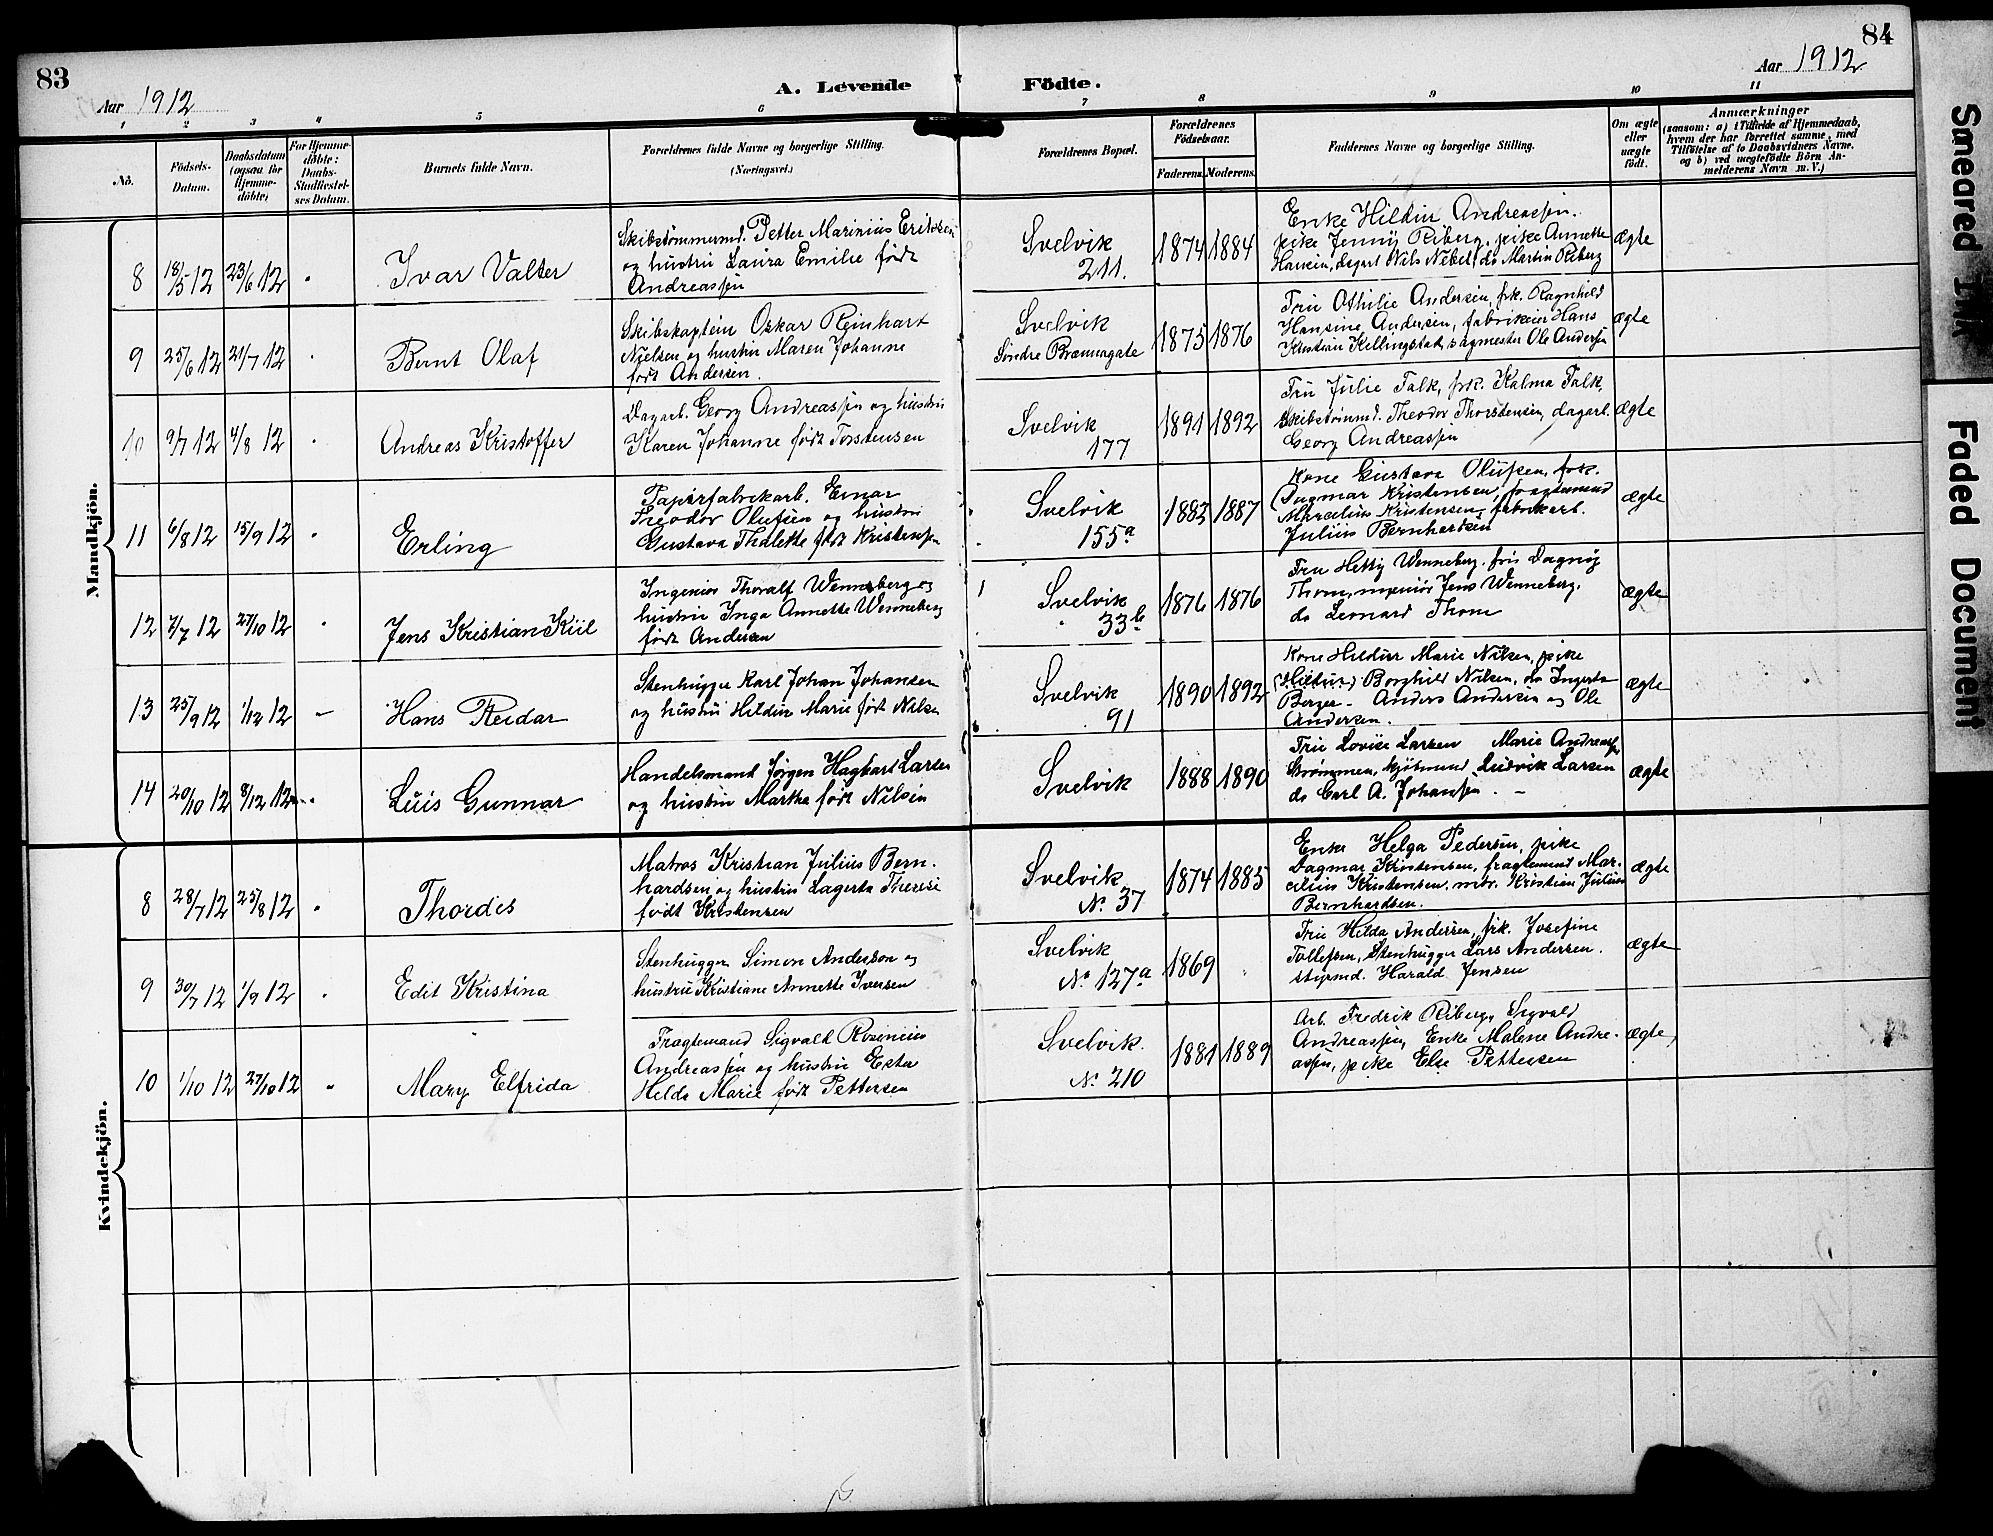 83
84
Aar 1912
A. Levende Födte.
Aar 1912
1 2 3 4 5 6 7 8 9 10 11
No.
Födsels-
Datum.
Daabsdatum
(ogsaa for
Hjemme-
döbte)
For Hjemme-
döbte:
Daabs-
Stadfæstel-
ses Datum.
Barnets fulde Navn.
Forældrenes fulde Navne og borgerlige Stilling.
(Næringsvei.)
Forældrenes Bopæl.
Forældrenes
Födselsaar.
Faderens. Moderens.
Faddernes Navne og borgerlige Stilling.
Om ægte
eller
uægte
födt.
Anmærkninger
(saasom: a) i Tilfælde af Hjemmedaab,
hvem der har forrettet samme, med
Tilföielse af to Daabsvidners Navne,
og b) ved uægtefödte Börn An-
melderens Navn m. V.)
Mandkjön.
8 18/5 12 23/6 12 Ivar Valter
Skibstömmermd. Petter Marinius Eriksen
og hustru Laura Emilie født
Andreassen
Svelvik
211.
1874 1884
Enke Hildur Andreassen.
pike Jenny Riberg, pike Annette
Hansen, dagarb Nils Nebel, do Martin Riberg
ægte
9 25/6 12 21/7 12 Bernt Olaf
Skibskaptein Oskar Reinhart
Nielsen og hustru Maren Johanne
født Andersen.
Svelvik
Søndre Brænnagate
1875 1876
Fru Othilie Andersen, frk. Ragnhild
Hansine Andersen, fabrikeier Hans
Kristian Kellingstad, sagmester Ole Andersen
ægte
10 9/7 12 4/8 12 Andreas Kristoffer
Dagarb. Georg Andreassen og hustru
Karen Johanne født Torstensen
Svelvik
177
1891 1892
Fru Julie Falk, frk. Kalma Falk,
Skibstømmd. Theodor Thorstensen, dagarb.
Georg Andreassen
ægte
11 6/8 12 15/9 12 Erling
Papirfabrikarb. Einar
Theodor Olufsen og hustru
Gustava Thalette født Kristensen
Svelvik
155a
1883 1887
Kone Gustava Olufsen, frk.
Dagmar Kristensen, fragtemand
Marcelius Kristensen, fabrikarb.
Julius Bernhardsen
ægte
12 7/7 12 27/10 12 Jens Kristian Kiil
Ingeniør Thoralf Wenneberg og
hustru Inga Annette Wenneberg
født Andersen
Svelvik
33b
1876 1876
Fru Hetty Wenneberg, fru Dagny
Thom, ingeniør Jens Wenneberg,
do Leonard Thom
ægte
13 25/9 12 1/12 12 Hans Reidar
Stenhugger Karl Johan Johansen
og hustru Hildur Marie født Nilsen
Svelvik
91
1890 1892
Kone Hildur Marie Nilsen, pike
(Hildur) Borghild Nilsen, do Ingerta
Berger - Anders Andersen og Ole
Andersen.
ægte
14 20/10 12 8/12 12 Luis Gunnar
Handelsmand Jørgen Hagbart Larsen
og hustru Marthe født Nilsen
Svelvik
1888 1890
Fru Lovise Larsen Marie Andreassen
Strømmen, kjøbmand Ludvik Larsen
do Carl A. Johansen. -
ægte
Kvindekjön.
8 28/7 12 25/8 12 Thordis
Matros Kristian Julius Bern-
hardsen og hustru Lagerta Therese
født Kristensen
Svelvik
No. 37
1874 1885
Enke Helga Pedersen, pike
Dagmar Kristensen, fragtemand Mar-
celius Kristensen, mtr. Kristian Julius
Bernhardsen.
ægte
9 30/7 12 1/9 12 Edit Kristina
Stenhugger Simon Anderson og
hustru Kristiane Annette Iversen
Svelvik
No 127a
1869
Fru Hilda Andersen, frk. Josefine
Tollefsen, Stenhugger Lars Andersen.
styrmd. Harald Jensen
ægte
10 1/10 12 27/10 12 Mary Elfrida
Fragtemand Sigvald Rosenius
Andreassen og hustru Ester
Hilda Marie født Pettersen
Svelvik.
No. 210
1881 1889
Arb. Fredrik Riberg, Sigvald
Andreassen, Enke Malene Andre-
assen, pike Else Pettersen
ægte,
Smeared Ink
Faded Document